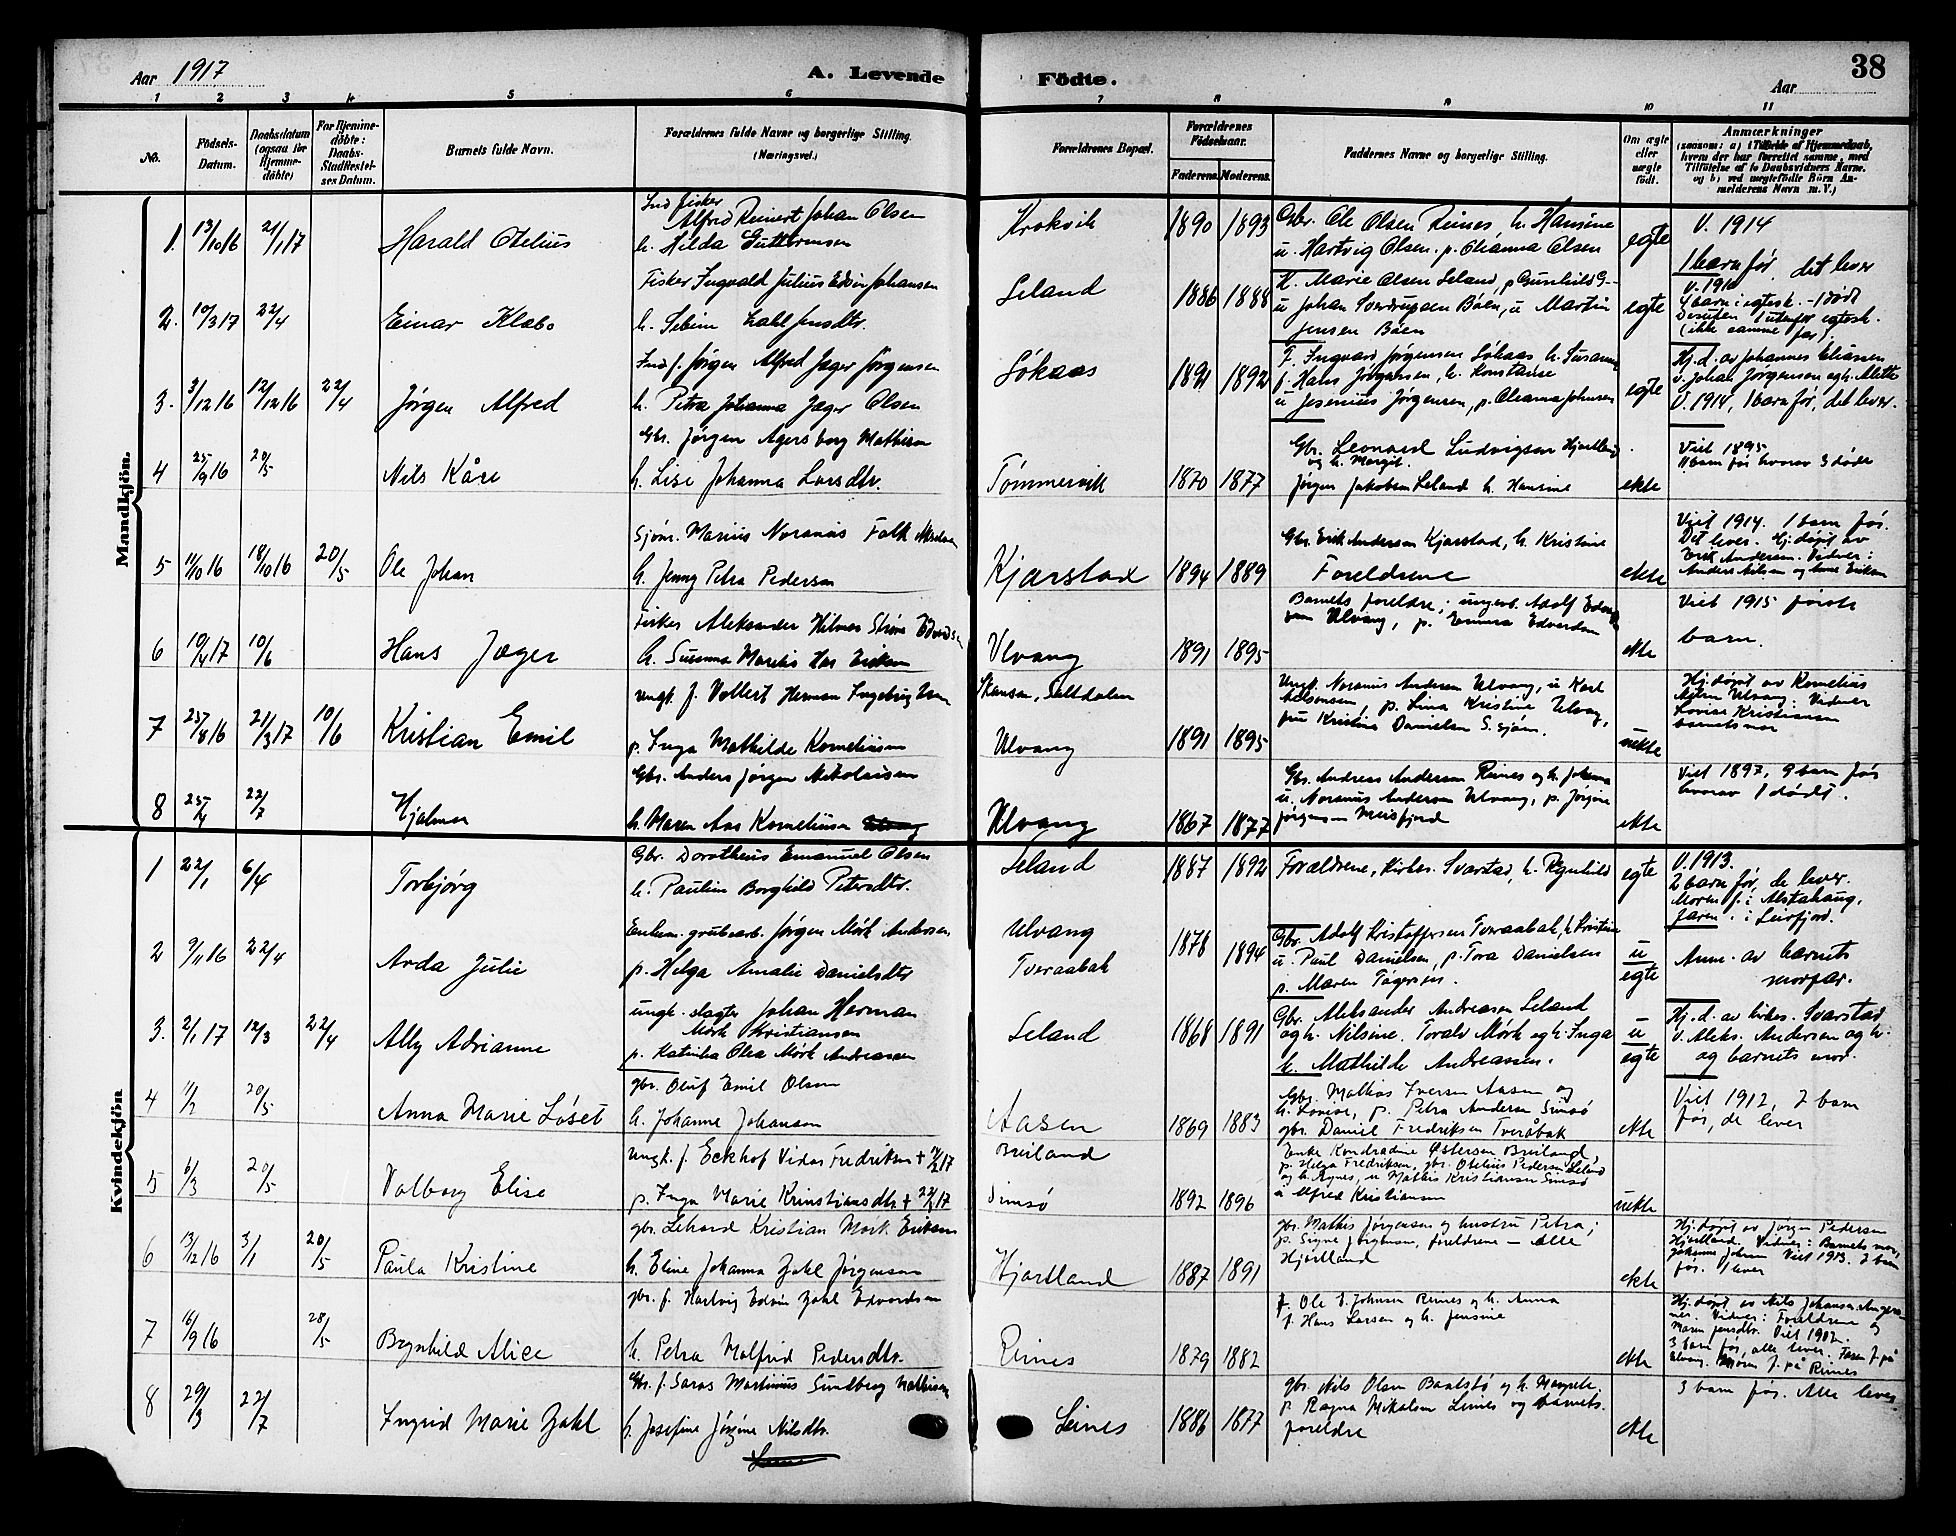 Aar 1917
A. Levende Födte.
Aar
38
1 2 3 4 5 6 7 8 9 10 11
No.
Födsels-Datum.
Daabsdatum (ogsaa for Hjemme-döbte)
For Hjemme-döbte: Daabs-Stadfestel-ses Datum.
Barnets fulde Navn.
Forældrenes fulde Navne og borgerlige Stilling. (Næringsvei.)
Forældrenes Bopæl.
Forældrenes Födselsaar.
Faderens. Moderens.
Faddernes Navne og borgerlige Stilling.
Om ægte eller uægte födt.
Anmærkninger
(saasom: a) i Tilfælde af Hjemmedaab,
hvem der har forrettet samme, med
Tilföielse af to Daabsvidners Navne,
og b) ved uægtefödte Börn An-
melderens Navn m. V.)
Mandkjön.
1. 13/10 16 21/1 17 Harald Otelius
Ind fisker
Alfred Reinert Johan Olsen
h. Hilda Guttormsen
Krokvik 1890 1893
Gbr. Ole Olsen Reines, h. Hansine
u. Hartvig Olsen. p. Oleanna Olsen
egte
V. 1914
1 barn før, det lever
2. 10/3 17 22/4 Einar Klebo
Fisker Ingvald Julius Edvin Johansen
h. Sebine Zahl Jensdtr.
Leland 1886 1888
K. Marie Olsen Leland, p Gunhild G.
u Johan Sverdrupsen Böen, u Martin
Jensen Böen
egte
V. 1910
4 barn i egtesk. - 1 dödt
Desuten 1 utenfor egtesk.
(ikke samme far).
3. 3/12 16 12/12 16 22/4 Jörgen Alfred
Ind f. Jörgen Alfred Jæger Jörgensen
h. Petra Johanna Jæger Olsen
Lökaas 1891 1892
F. Ingvard Jørgensen Lökaas h. Susanna
f. Hans Jörgensen, h. Konstanse
u Jesenius Jörgensen, p. Oleanna Johnsen
egte
Hj.d. av Johannes Eliassen
v. Johan Jörgensen og h. Mette
V. 1914, 1 barn før, det lever.
4 25/9 16 20/5 Nils Kåre
Gbr. Jörgen Agersborg Mathisen
h. Lise Johanna Larsdtr.
Tömmervik 1870 1877
Gbr. Leonard Ludvigsen Hjortland
og h. Margit.
Jörgen Jakobsen Leland h. Hansine
ekte
Viet 1895
11 barn før hvorav 3 døde
5 11/10 16 18/10 16 20/5 Ole Johan
Sjöm. Marius Noranus Falk
h. Jenny Petra Pedersen
Kjærstad 1894 1889
Gbr. Erik Andersen Kjærstad, h. Kristine
Foreldrene
ekte
Viet 1914. 1 barn før.
Det lever. Hj.døpt av
Erik Andersen. Vidner:
Anders Nilsen og Anne Eriksen
6 19/4 17 10/6 Hans Jæger
Fisker Aleksander Hilmar Ström Edvardsen
h. Susanna Marelis
Ulvang 1891 1895
Barnets foreldre; ungk. Adolf Edvardsen
Ulvang, p. Emma Edvardsen
ekte
Viet 1915 første
barn.
7 25/8 16 21/3 17 10/6 Kristian Emil
ungk. f. Vollert Herman Ingebrig
p. Inga Mathilde Korneliussen
Skansen, Saltdalen
Ulvang 1891 1895
Ungk. Noranus Andersen Ulvang, u Karl
Nilsonsen, p. Lina Kristine Ulvang,
fru Kristine Danielsen S.sjöen.
uekte
Hj.døpt av Kornelius
Nilsen Ulvang: Vidner
Lovise Kristiansen
barnets mor
8 25/4 22/7 Hjalmar
Gbr. Anders Jörgen Nikolaisen
h. Maren Aas Korneliussen
Ulvang 1867 1877
Gbr. Andreas Andersen Reines og h. Johanna
u. Noranus Andersen Ulvang, p. Jörgine
Jörgensen Meisfjord
ekte
Viet 1897, 9 barn før
hvorav 1 dødt.
Kvindekjön
1 22/1 6/4 Torbjörg
Gbr. Dorotheus Emanuel Olsen
h. Pauline Borghild Petersdtr.
Leland 1887 1892
Forældrene, Kirkes. Svarstad, h. Ragnhild
egte
V. 1913.
2 barn før, de lever.
Moren f. i Alstahaug,
faren " i Leirfjord.
2 9/11 16 22/4 Arda Julie
Enkem. grubearb. Jörgen Mörk Andersen
p. Helga Amalie Danielsdtr
Ulvang
Tveraabak 1878 1894
Gbr. Adolf Kristoffersen Tveraabak, h Kristine
u. Paul Danielsen, p. Tora Danielsen
p. Maren Tögersen.
u egte
Anm. av barnets
morfar.
3. 2/1 17 12/3 22/4 Ally Adrianne
ungk. slagter Johan Herman
Mörk Kristiansen
p. Katinka Olea Mörk Andreassen
Leland 1868 1891
Gbr. Aleksander Andreasen Leland
og h. Nilsine. Torald Mörk og h. Inga
h. Mathilde Andreassen.
u egte
Hj.d. av kirkes. Svarstad
v. Aleks. Andersen og h.
og barnets mor.
4 11/2 20/5 Anna Marie Löset
gbr. Oluf Emil Olsen
h. Johanne Johansen
Aasen 1869 1883
Gbr. Mathias Iversen Aasen og
h. Lovise, p. Petra Andersen Simsö
gbr. Daniel Fredriksen Tveråbak
ekte
Viet 1912, 2 barn
før, de lever
5 6/3 20/5 Valborg Elise
ungk. f. Eckhof Vidar Fredriksen + 17
p. Inga Marie Kristiansdtr. + 17
Breiland
Simsö 1892 1896
Enke Kondradine Östersen Breiland,
p. Helga Fredriksen, gbr. Otelius Pedersen Leland
og h. Agnes, u Mathis Kristiansen Simsö
u Alfred Kristiansen
uekte
6 13/12 16 3/1 20/5 Paula Kristine
gbr. Lehard Kristian Mork Eriksen
h. Eline Johanna Zahl Jørgensen
Hjortland 1887 1891
gbr. Mathis Jørgensen og hustru Petra;
p. Signe Jørgensen, foreldrene - Alle
Hjortland
ekte
Hj.døpt av Jørgen Pedersen
Hjortland. Vidner: Barnets mor,
Johanne Johnsen Viet 1913. 2 barn
før. 1 lever
7 16/9 16 28/5 Brynhild Alice
gbr. f. Hartvig Edvin Zahl Edvardsen
h. Petra Malfrid Pedersdtr.
Reines 1879 1882
f. Ole E. Johnsen Reines og h. Anna
f. Hans Larsen og h. Jensine
ekte
Hj.døpt av Nils Johansen
Vidner: Foreldrene og
Maren Jensdtr. Viet 1902.
3 barn før, alle lever. Faren f. på
Ulvang. Moren f. på Reines
8 29/3 22/7 Ingrid Marie Zahl
Gbr. f. Saras Martinus Sundberg Mathisen
h. Josefine Jörgine Nilsdtr.
Leines 1886 1877
gbr. Nils Olsen og h.
p. Ragna Mikalsen Leines og barnets
foreldre
ekte
3 barn før. Alle lever